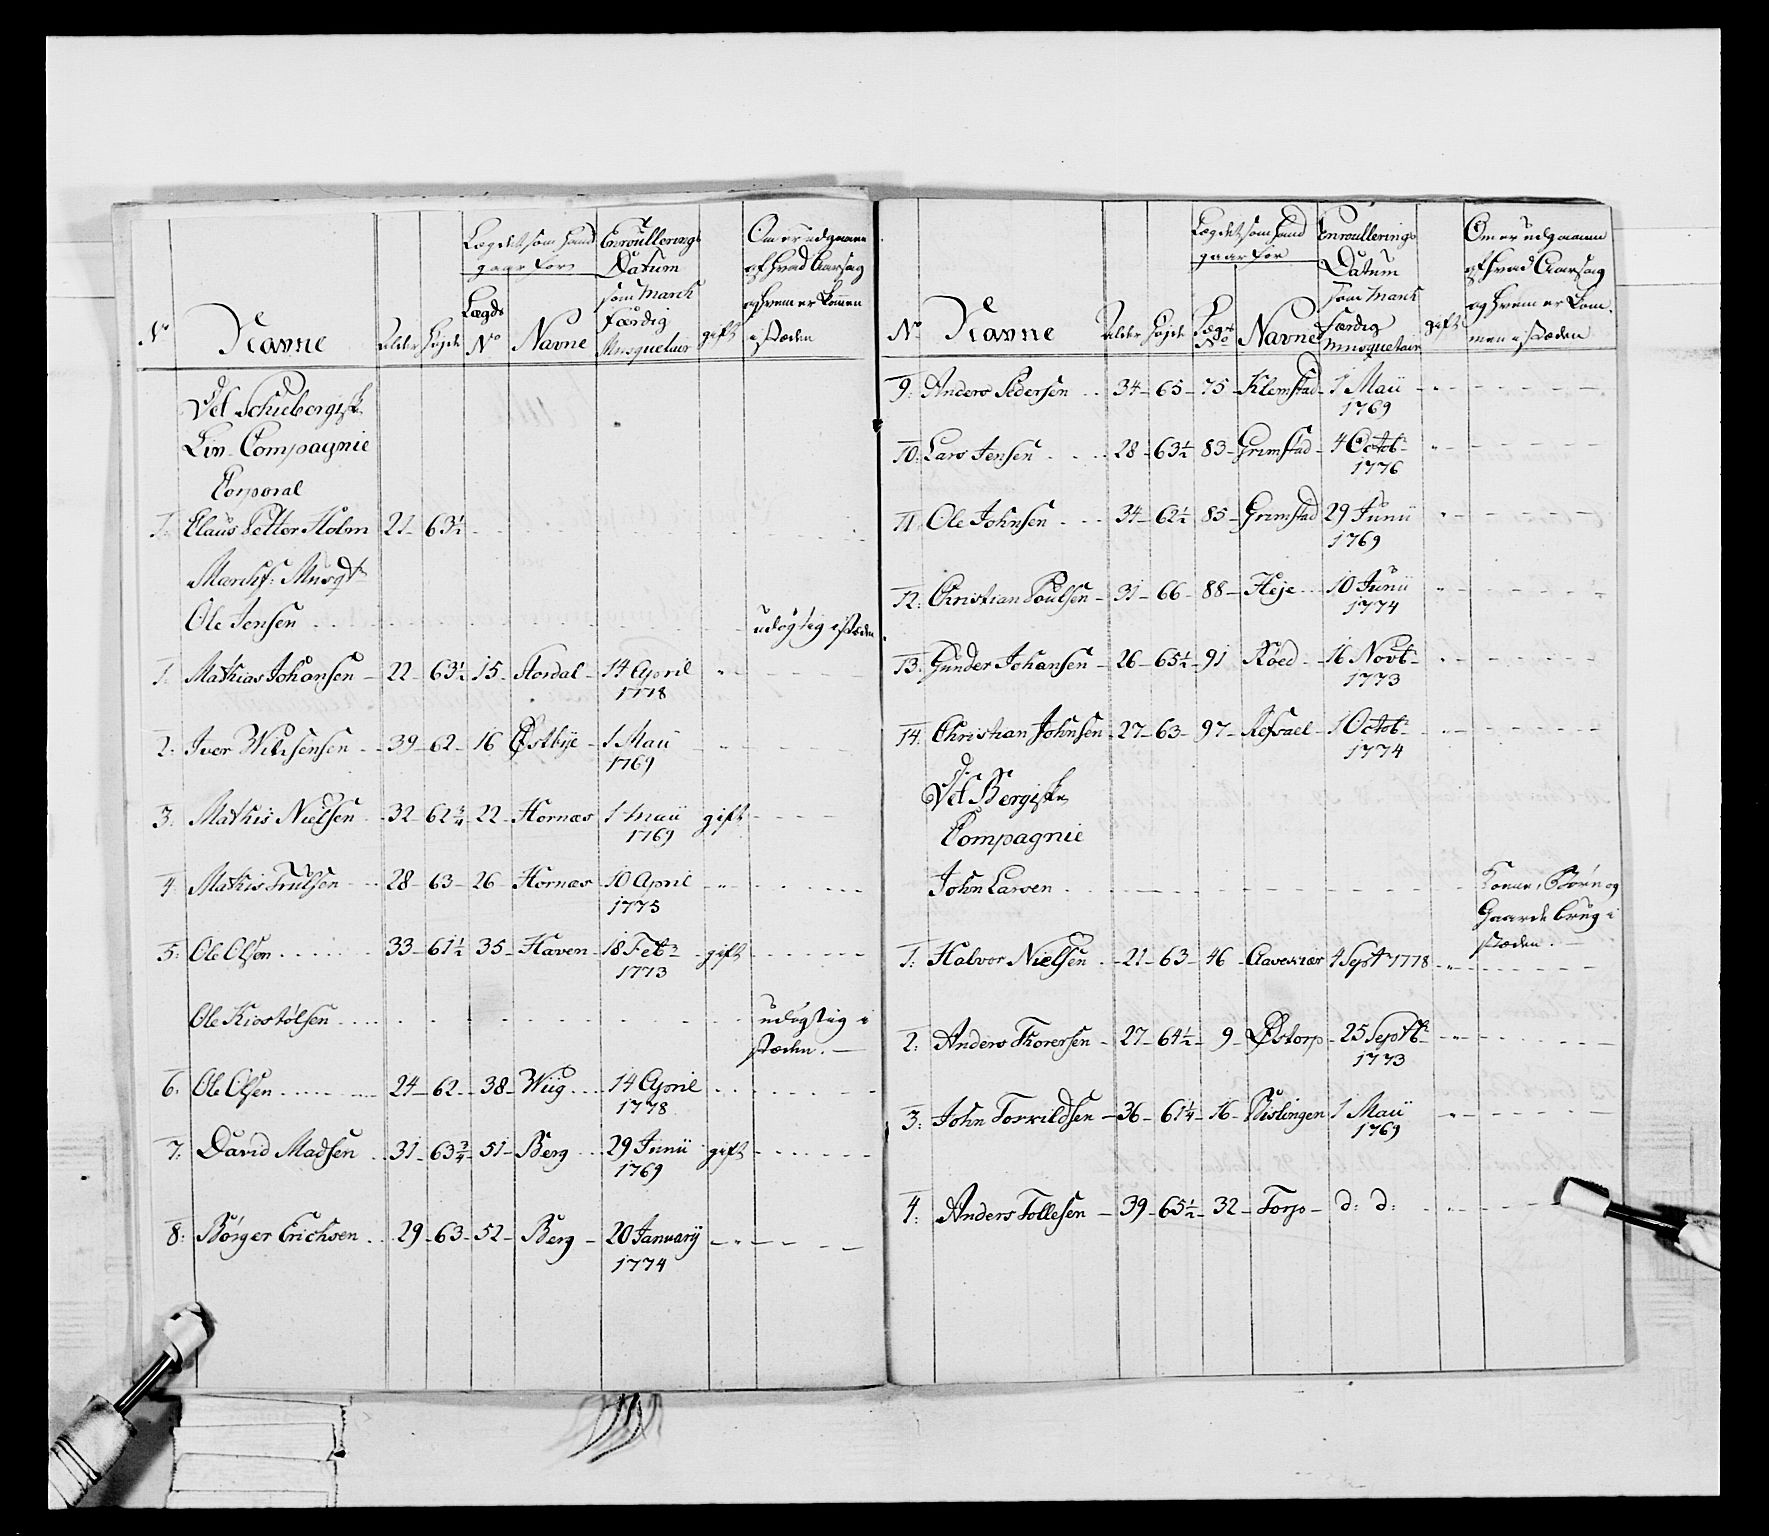 No Navne Alder Højde Lægdet som hand gaar for Lægds No Navne Enroullerings Datum som March færdig Musqueteur gift Om er udgaaen af hvad Aarsag og hvem er kommen i stæden
Det Schiebergiske
Liv Compagnie
Corporal
1. Claus Petter Holm 21 63½
Marchf: Musqt
Ole Jensen udøgtig i stæden
1. Mathias Johansen 22 63½ 15 Stordal 14 April 1778
2. Iver 39 62 16 Østbÿe 1 Maii 1769
3. Mathis Nielsen 32 62¾ 22 Hornæs 1 Maii 1769 gift
4. Mathis Trulsen 28 63 26 Hornæs 10 April 1775
5. Ole Olsen 33 61½ 35 Haven 18 Febr 1773 gift
Ole Kiostølsen udøgtig i
stæden.
6. Ole Olsen 24 62 38 Wiig 14 April 1778
7. David Madsen 31 63¾ 51 Berg 29 Junii 1769 gift
8. Børger Erichsen 29 63 52 Berg 20 Januarÿ 1774
No Navne Alder Højde Lægdet som hand gaar for Lægds No Navne Enroullerings Datum som March færdig musqueteur gift Om er udgaaen af hvad Aarsag og hvem er kommen i stæden
9. Anders Pedersen 34 65 75 Klemstad 1 Maii 1769
10. Lars Jensen 28 63½ 83 Grimstad 4 Octobr 1776
11. Ole Johnsen 34 62½ 85 Grimstad 29 Junii 1769
12. Christian Poulsen 31 66 88 Heje 10 Junii 1774
13. Gunder Johansen 26 65½ 91 Røed 16 Novbr 1773
14. Christian Johnsen 27 63 97 Refsael 1 Octobr 1774
Det Bergiske
Compagnie
John Larsen Kone, Børn og
Gaarde brug i
stæden.
1. Halvor Nielsen 21 63 46 4 Septr 1778
2. Anders Thorersen 27 64½ 9 Østorp 25 Septbr 1773
3. John Torkildsen 36 61¼ 16 Bislingen 1 Maii 1769
4. Anders Tollesen 39 65½ 32 Torp d: d: